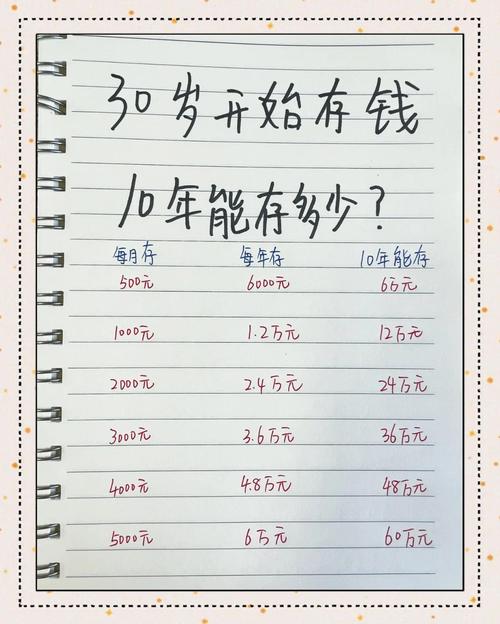 30岁开始存钱
10年能存多少?
每月存 每年存 10年能存
500元 6000元 6万元
1000元 1.2万元 12万元
2000元 2.4万元 24万元
3000元 3.6万元 36万元
4000元 4.8万元 48万元
5000元 6万元 60万元